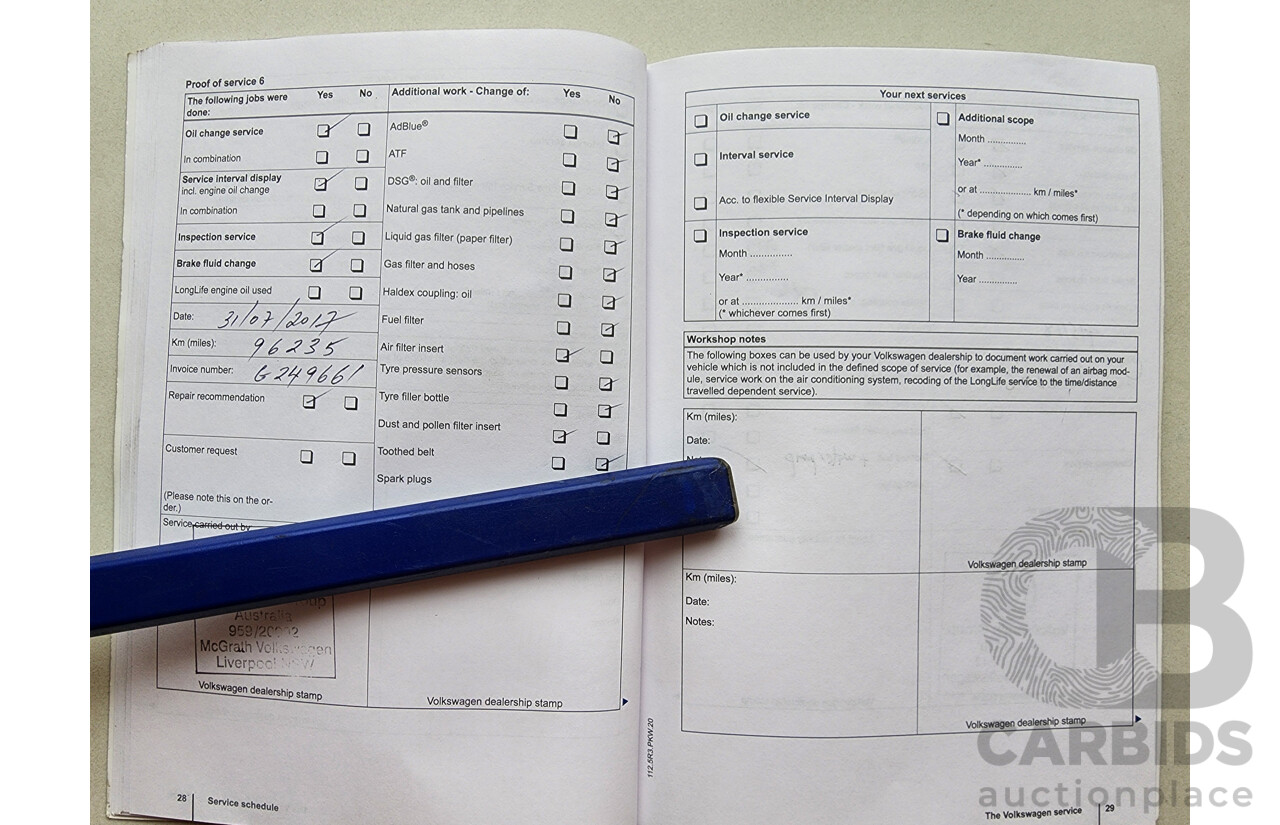 Proof of service 6
The following jobs were done: Yes No
Oil change service
In combination
Service interval display
incl. engine oil change
In combination
Inspection service
Brake fluid change
LongLife engine oil used
Date: 31/07/2017
Km (miles): 96235
Invoice number: G249661
Repair recommendation
Customer request
(Please note this on the or-
der.)
Service carried out by
Australia
McGrath Volkswagen
Liverpool NSW
Volkswagen dealership stamp
Additional work - Change of: Yes No
AdBlue®
ATF
DSG®: oil and filter
Natural gas tank and pipelines
Liquid gas filter (paper filter)
Gas filter and hoses
Haldex coupling: oil
Fuel filter
Air filter insert
Tyre pressure sensors
Tyre filler bottle
Dust and pollen filter insert
Toothed belt
Spark plugs
Volkswagen dealership stamp
28 Service schedule
Your next services
Oil change service
Interval service
Acc. to flexible Service Interval Display
Inspection service
Month ..............
Year* ..............
or at ................... km / miles*
(* whichever comes first)
Additional scope
Month .............
Year* .............
or at .................. km / miles*
(* depending on which comes first)
Brake fluid change
Month .............
Year .............
Workshop notes
The following boxes can be used by your Volkswagen dealership to document work carried out on your
vehicle which is not included in the defined scope of service (for example, the renewal of an airbag mod-
ule, service work on the air conditioning system, recoding of the LongLife service to the time/distance
travelled dependent service).
Km (miles):
Date:
Volkswagen dealership stamp
Km (miles):
Date:
Notes:
Volkswagen dealership stamp
112.5R3.PKW.20
The Volkswagen service 29
CB
CARBIDS
auctionplace